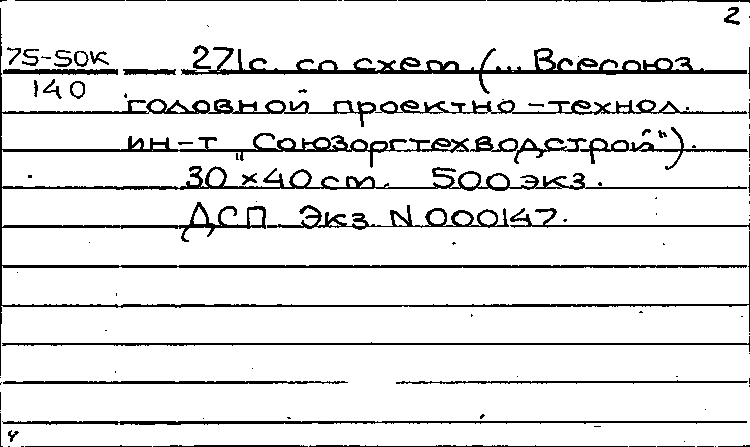 2
75-50К
140
271с. со схем. (... Всесоюз.
головной проектно-технол.
ин-т „Союзоргтехводстрой").
30×40 см. 500 экз.
ДСП. Экз. N 000147.